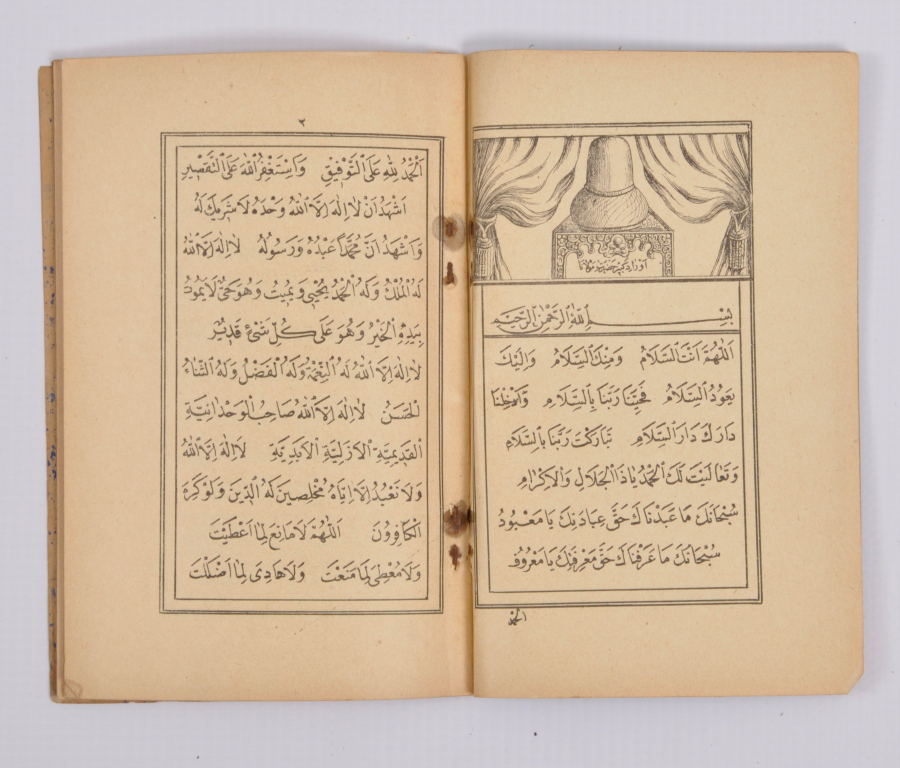 اوراد كبير حضرت مولانا
بسم الله الرحمن الرحيم
اَللّٰهُمَّ اَنْتَ السَّلَامُ وَمِنْكَ السَّلَامُ وَاِلَيْكَ
يَعُودُ السَّلَامُ فَحَيِّنَا رَبَّنَا بِالسَّلَامِ وَاَدْخِلْنَا
دَارَكَ دَارَ السَّلَامِ تَبَارَكْتَ رَبَّنَا بِالسَّلَامِ
وَتَعَالَيْتَ لَكَ الْحَمْدُ يَا ذَا الْجَلَالِ وَالْاِكْرَامِ
سُبْحَانَكَ مَا عَبَدْنَاكَ حَقَّ عِبَادَتِكَ يَا مَعْبُودُ
سُبْحَانَكَ مَا عَرَفْنَاكَ حَقَّ مَعْرِفَتِكَ يَا مَعْرُوفُ
الحمد
٢
اَلْحَمْدُ لِلّٰهِ عَلَى التَّوْفِيقِ وَاَسْتَغْفِرُ اللّٰهَ عَلَى التَّقْصِيرِ
اَشْهَدُ اَنْ لَا اِلٰهَ اِلَّا اللّٰهُ وَحْدَهُ لَا شَرِيكَ لَهُ
وَاَشْهَدُ اَنَّ مُحَمَّدًا عَبْدُهُ وَرَسُولُهُ لَا اِلٰهَ اِلَّا اللّٰهُ
لَهُ الْمُلْكُ وَلَهُ الْحَمْدُ يُحْيِي وَيُمِيتُ وَهُوَ حَيٌّ لَا يَمُوتُ
بِيَدِهِ الْخَيْرُ وَهُوَ عَلَى كُلِّ شَيْءٍ قَدِيرٌ
لَا اِلٰهَ اِلَّا اللّٰهُ لَهُ النِّعْمَةُ وَلَهُ الْفَضْلُ وَلَهُ الثَّنَاءُ
الْحَسَنُ لَا اِلٰهَ اِلَّا اللّٰهُ صَاحِبُ الْوَحْدَانِيَّةِ
الْقَدِيمِيَّةِ الْاَزَلِيَّةِ الْاَبَدِيَّةِ لَا اِلٰهَ اِلَّا اللّٰهُ
وَلَا نَعْبُدُ اِلَّا اِيَّاهُ مُخْلِصِينَ لَهُ الدِّينَ وَلَوْ كَرِهَ
الْكَافِرُونَ اَللّٰهُمَّ لَا مَانِعَ لِمَا اَعْطَيْتَ
وَلَا مُعْطِيَ لِمَا مَنَعْتَ وَلَا هَادِيَ لِمَا اَضْلَلْتَ